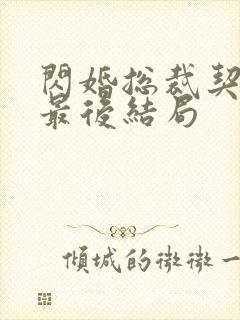 閃婚總裁契
最後結局
傾城的微微一